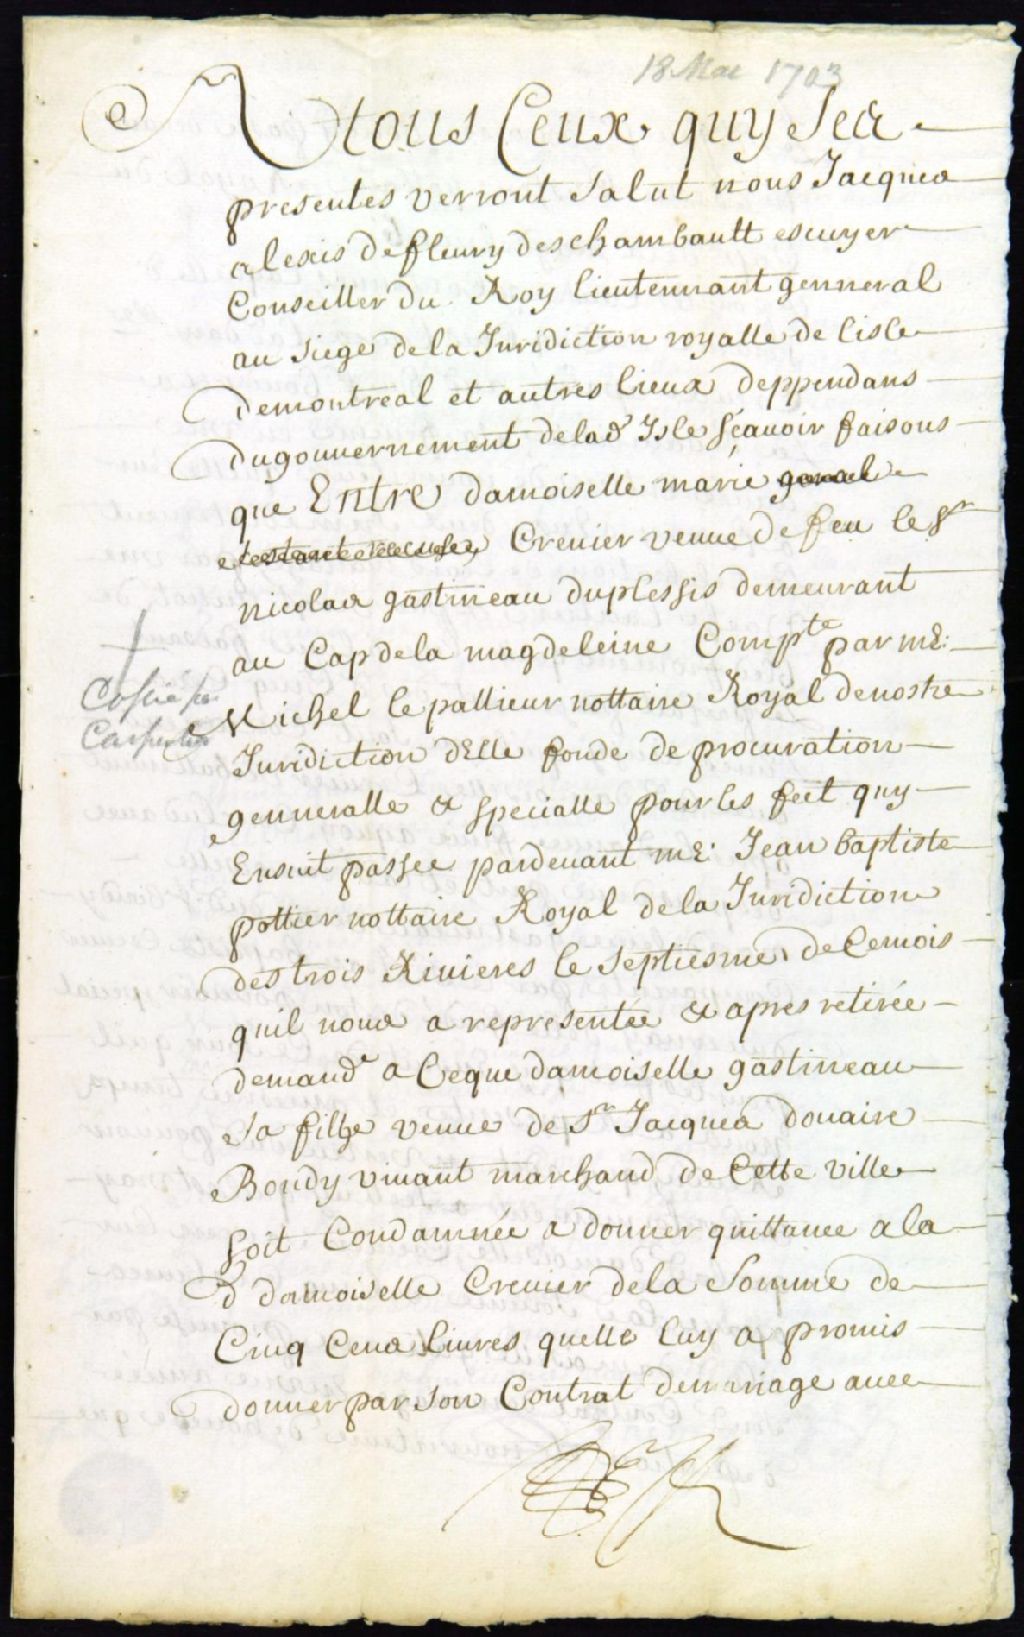 18 Mai 1703
A tous Ceux quy Ses
presentes verront salut nous Jacques
alexis de fleury deschambault escuyer
Conseiller du Roy lieutennant genneral
au siege de la Juridiction royalle de lisle
demontreal et autres lieux deppendans
dugouvernement delade Isle sçavoir faisons
que Entre damoiselle marie
Crevier veuve de feu le Sr
nicolas gastineau duplessis demeurant
au Cap dela magdeleine Compte par me
Michel lepallieur nottaire Royal denostre
Juridiction dElle fondé de procuration
genneralle & specialle pour les feit quy
Ensuit passee pardevant me Jean baptiste
pottier nottaire Royal de la Juridiction
des trois Rivieres le septiesme de Cemois
quil nous a representée & apres retirée
demandr a Ceque damoiselle gastineau
sa fille veuve de Sr Jacques douaire
Bondy vivant marchand de Cette ville
soit Condamnée a donner quittance a la
d damoiselle Crevier de la Somme de
Cinq Cens Livres quelle luy a promis
donner par son Contrat demariage avec
Copié par
Carpentier